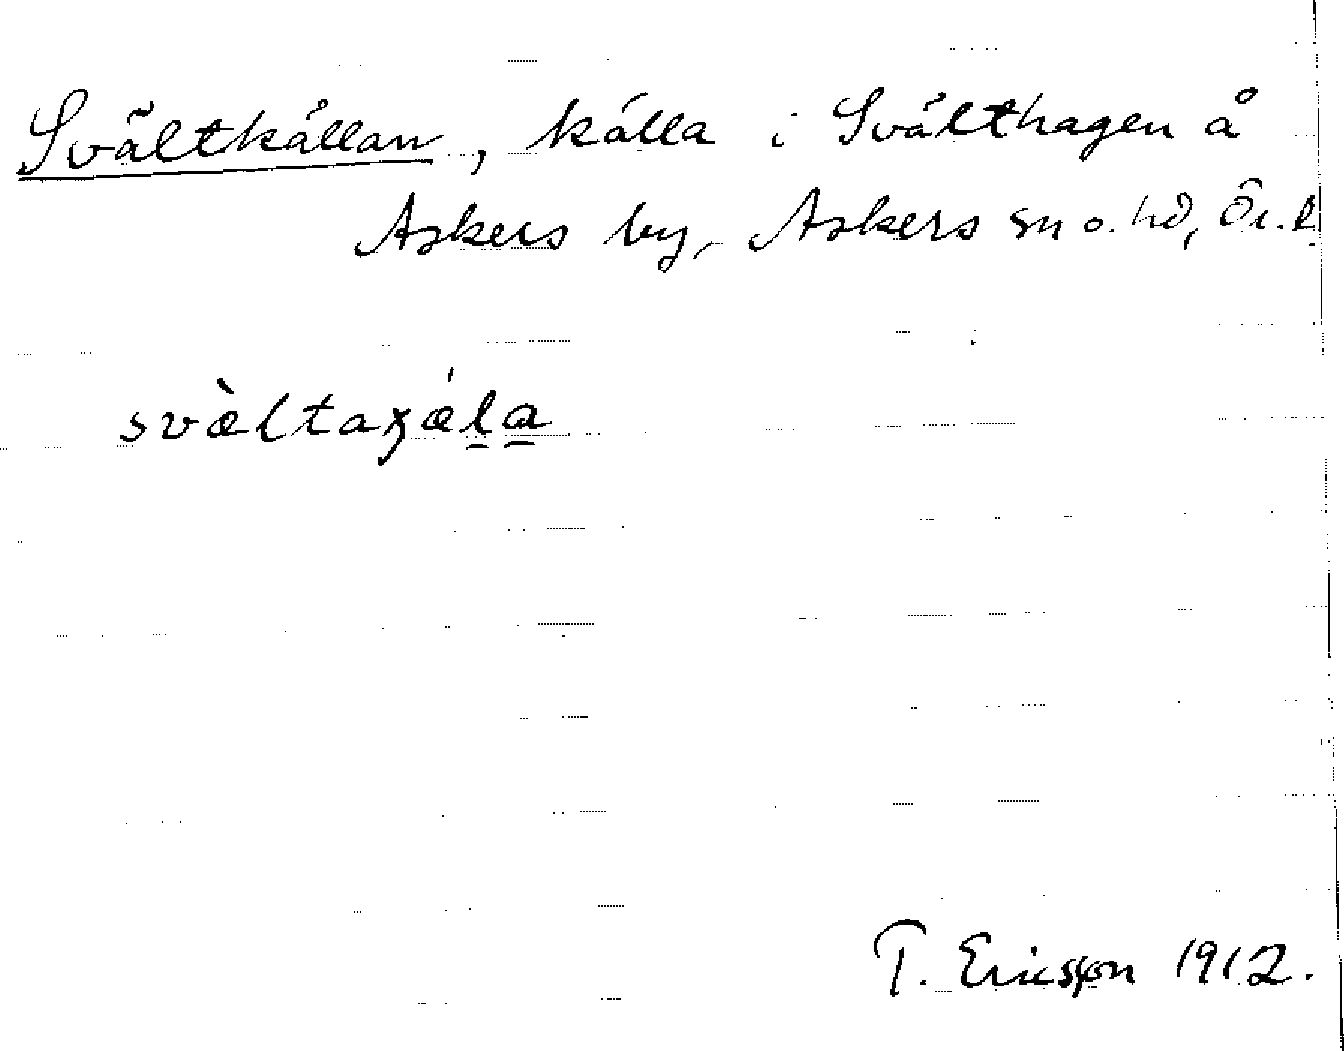 Svältkällan, källa i Svälthagen å
Askers by, Askers sn o. hd, Ör. l
svæ̀ltaꞩǽla
T. Ericsson 1912.